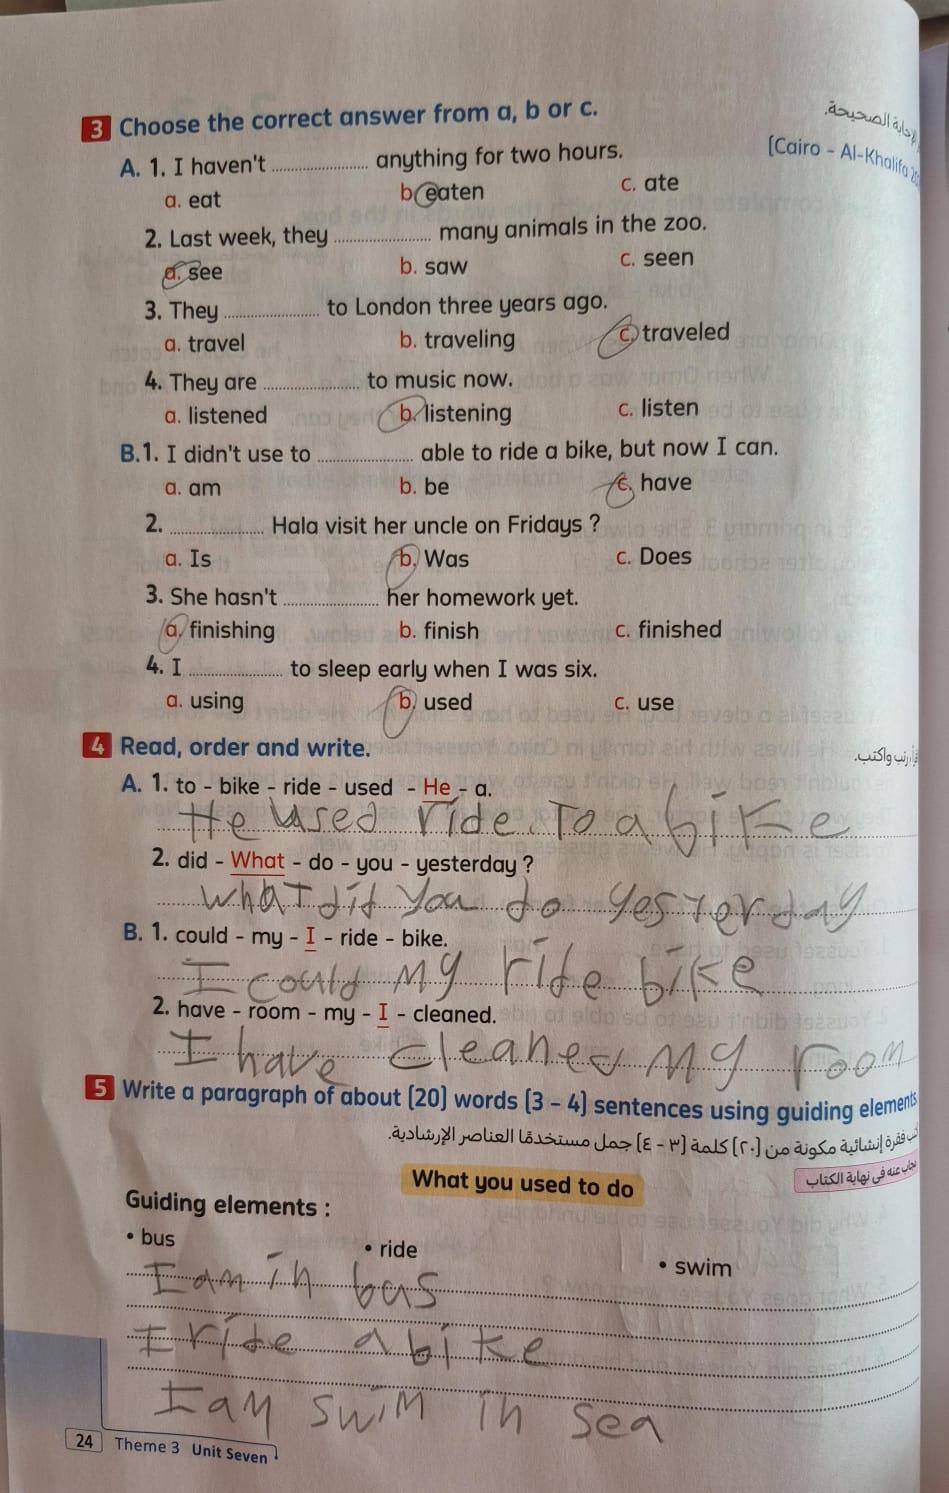 3 Choose the correct answer from a, b or c.
الإجابة الصحيحة.
A. 1. I haven't .................... anything for two hours.
[Cairo - Al-Khalifa
a. eat b. eaten c. ate
2. Last week, they .................... many animals in the zoo.
a. see b. saw c. seen
3. They .................... to London three years ago.
a. travel b. traveling c. traveled
4. They are .................... to music now.
a. listened b. listening c. listen
B.1. I didn't use to .................... able to ride a bike, but now I can.
a. am b. be c. have
2. .................... Hala visit her uncle on Fridays ?
a. Is b. Was c. Does
3. She hasn't .................... her homework yet.
a. finishing b. finish c. finished
4. I .................... to sleep early when I was six.
a. using b. used c. use
4 Read, order and write.
رتب واكتب.
A. 1. to - bike - ride - used - He - a.
He used ride To a bike
2. did - What - do - you - yesterday ?
whaT did You do YesTerday
B. 1. could - my - I - ride - bike.
I could My ride bike
2. have - room - my - I - cleaned.
I have cleaned My room
5 Write a paragraph of about (20) words (3 - 4) sentences using guiding elements
فقرة إنشائية مكونة من (٢٠) كلمة (٣ - ٤) جمل مستخدمًا العناصر الإرشادية.
مجاب عنه في نهاية الكتاب
What you used to do
Guiding elements :
• bus • ride • swim
I am in bus
I ride a bike
I am swim in sea
24 Theme 3 Unit Seven